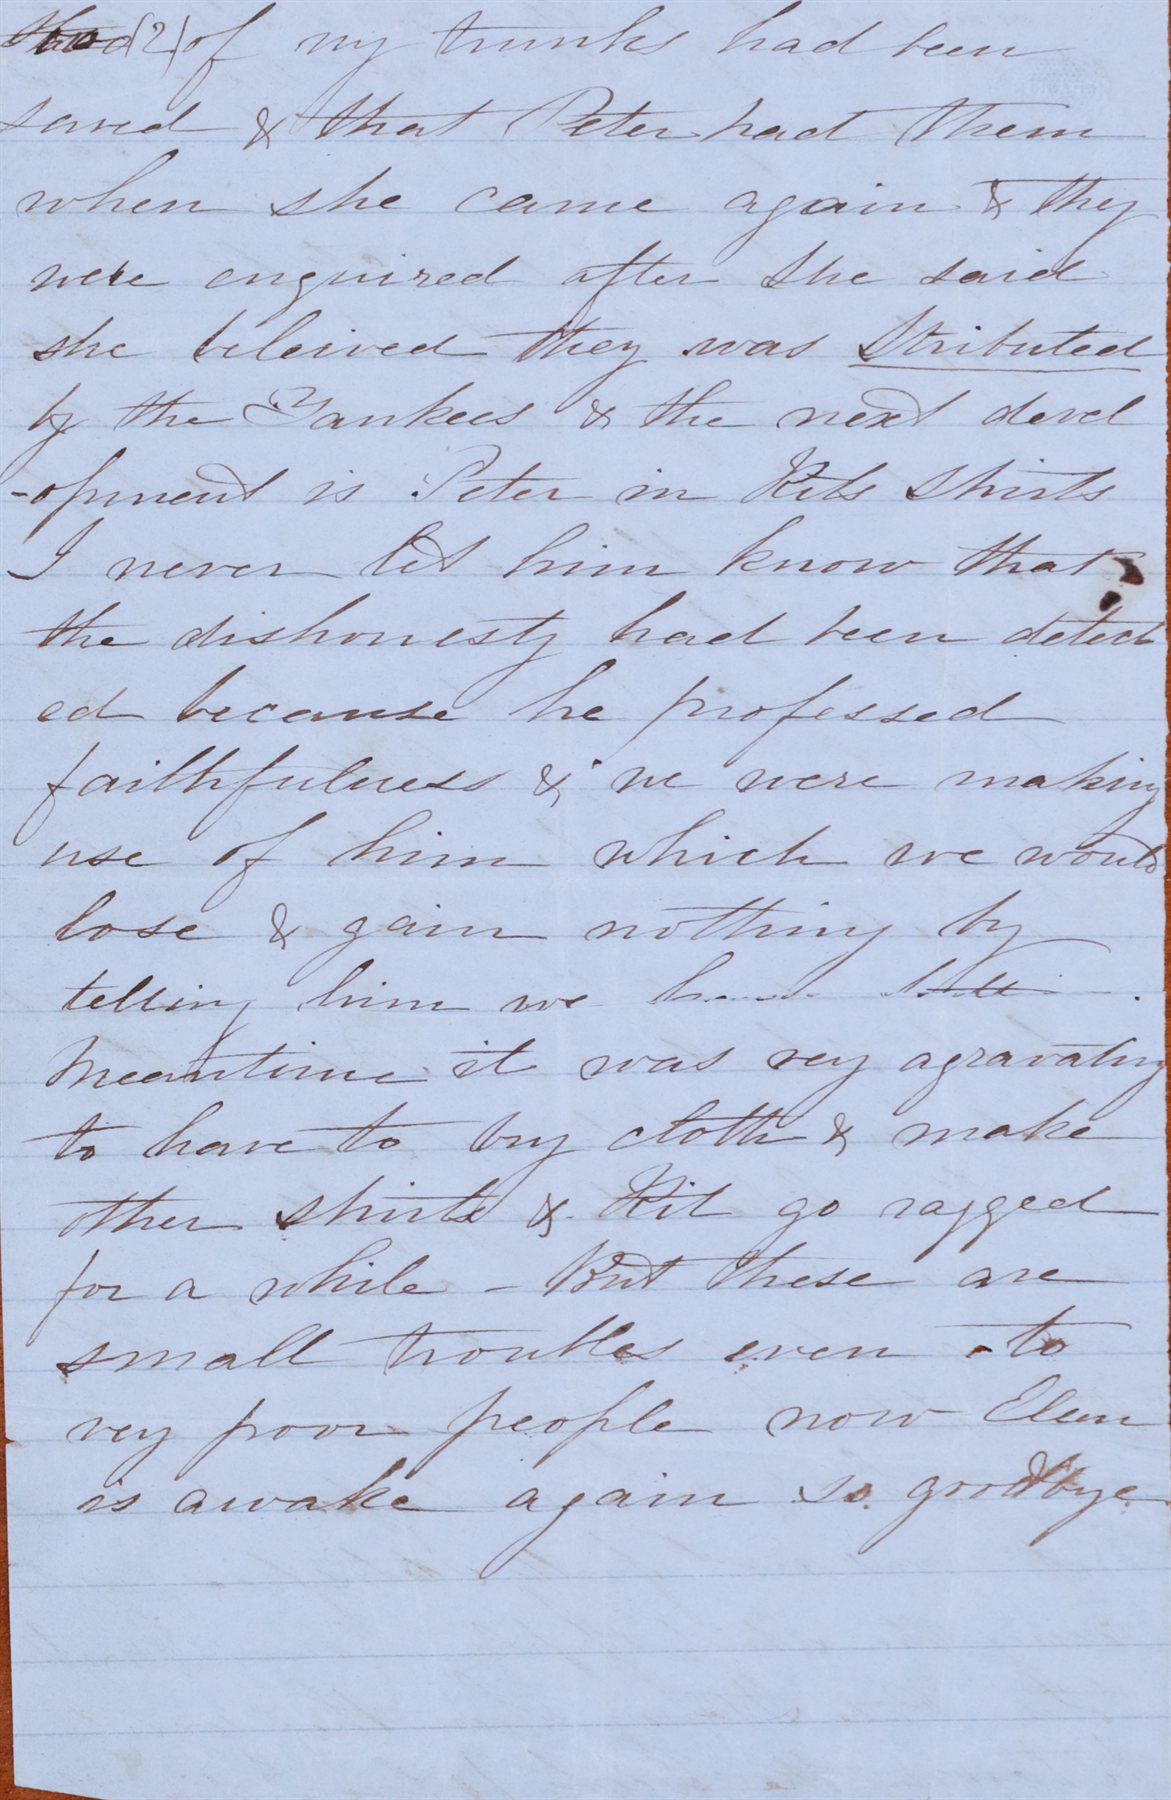 (2) of my trunks had been
saved & that Peter had them
when she came again & they
were enquired after she said
she beleived they was Stributed
by the Yankees & the next devel
-opment is Peter in Kits shirts
I never let him know that
the dishonesty had been detect
ed because he professed
faithfulness & we were making
use of him which we would
lose & gain nothing by
telling him we
Meantime it was vey agravating
to have to buy cloth & make
other shirts & Kit go ragged
for a while - But these are
small troubles even to
vey poor people now Elen
is awake again so goodbye